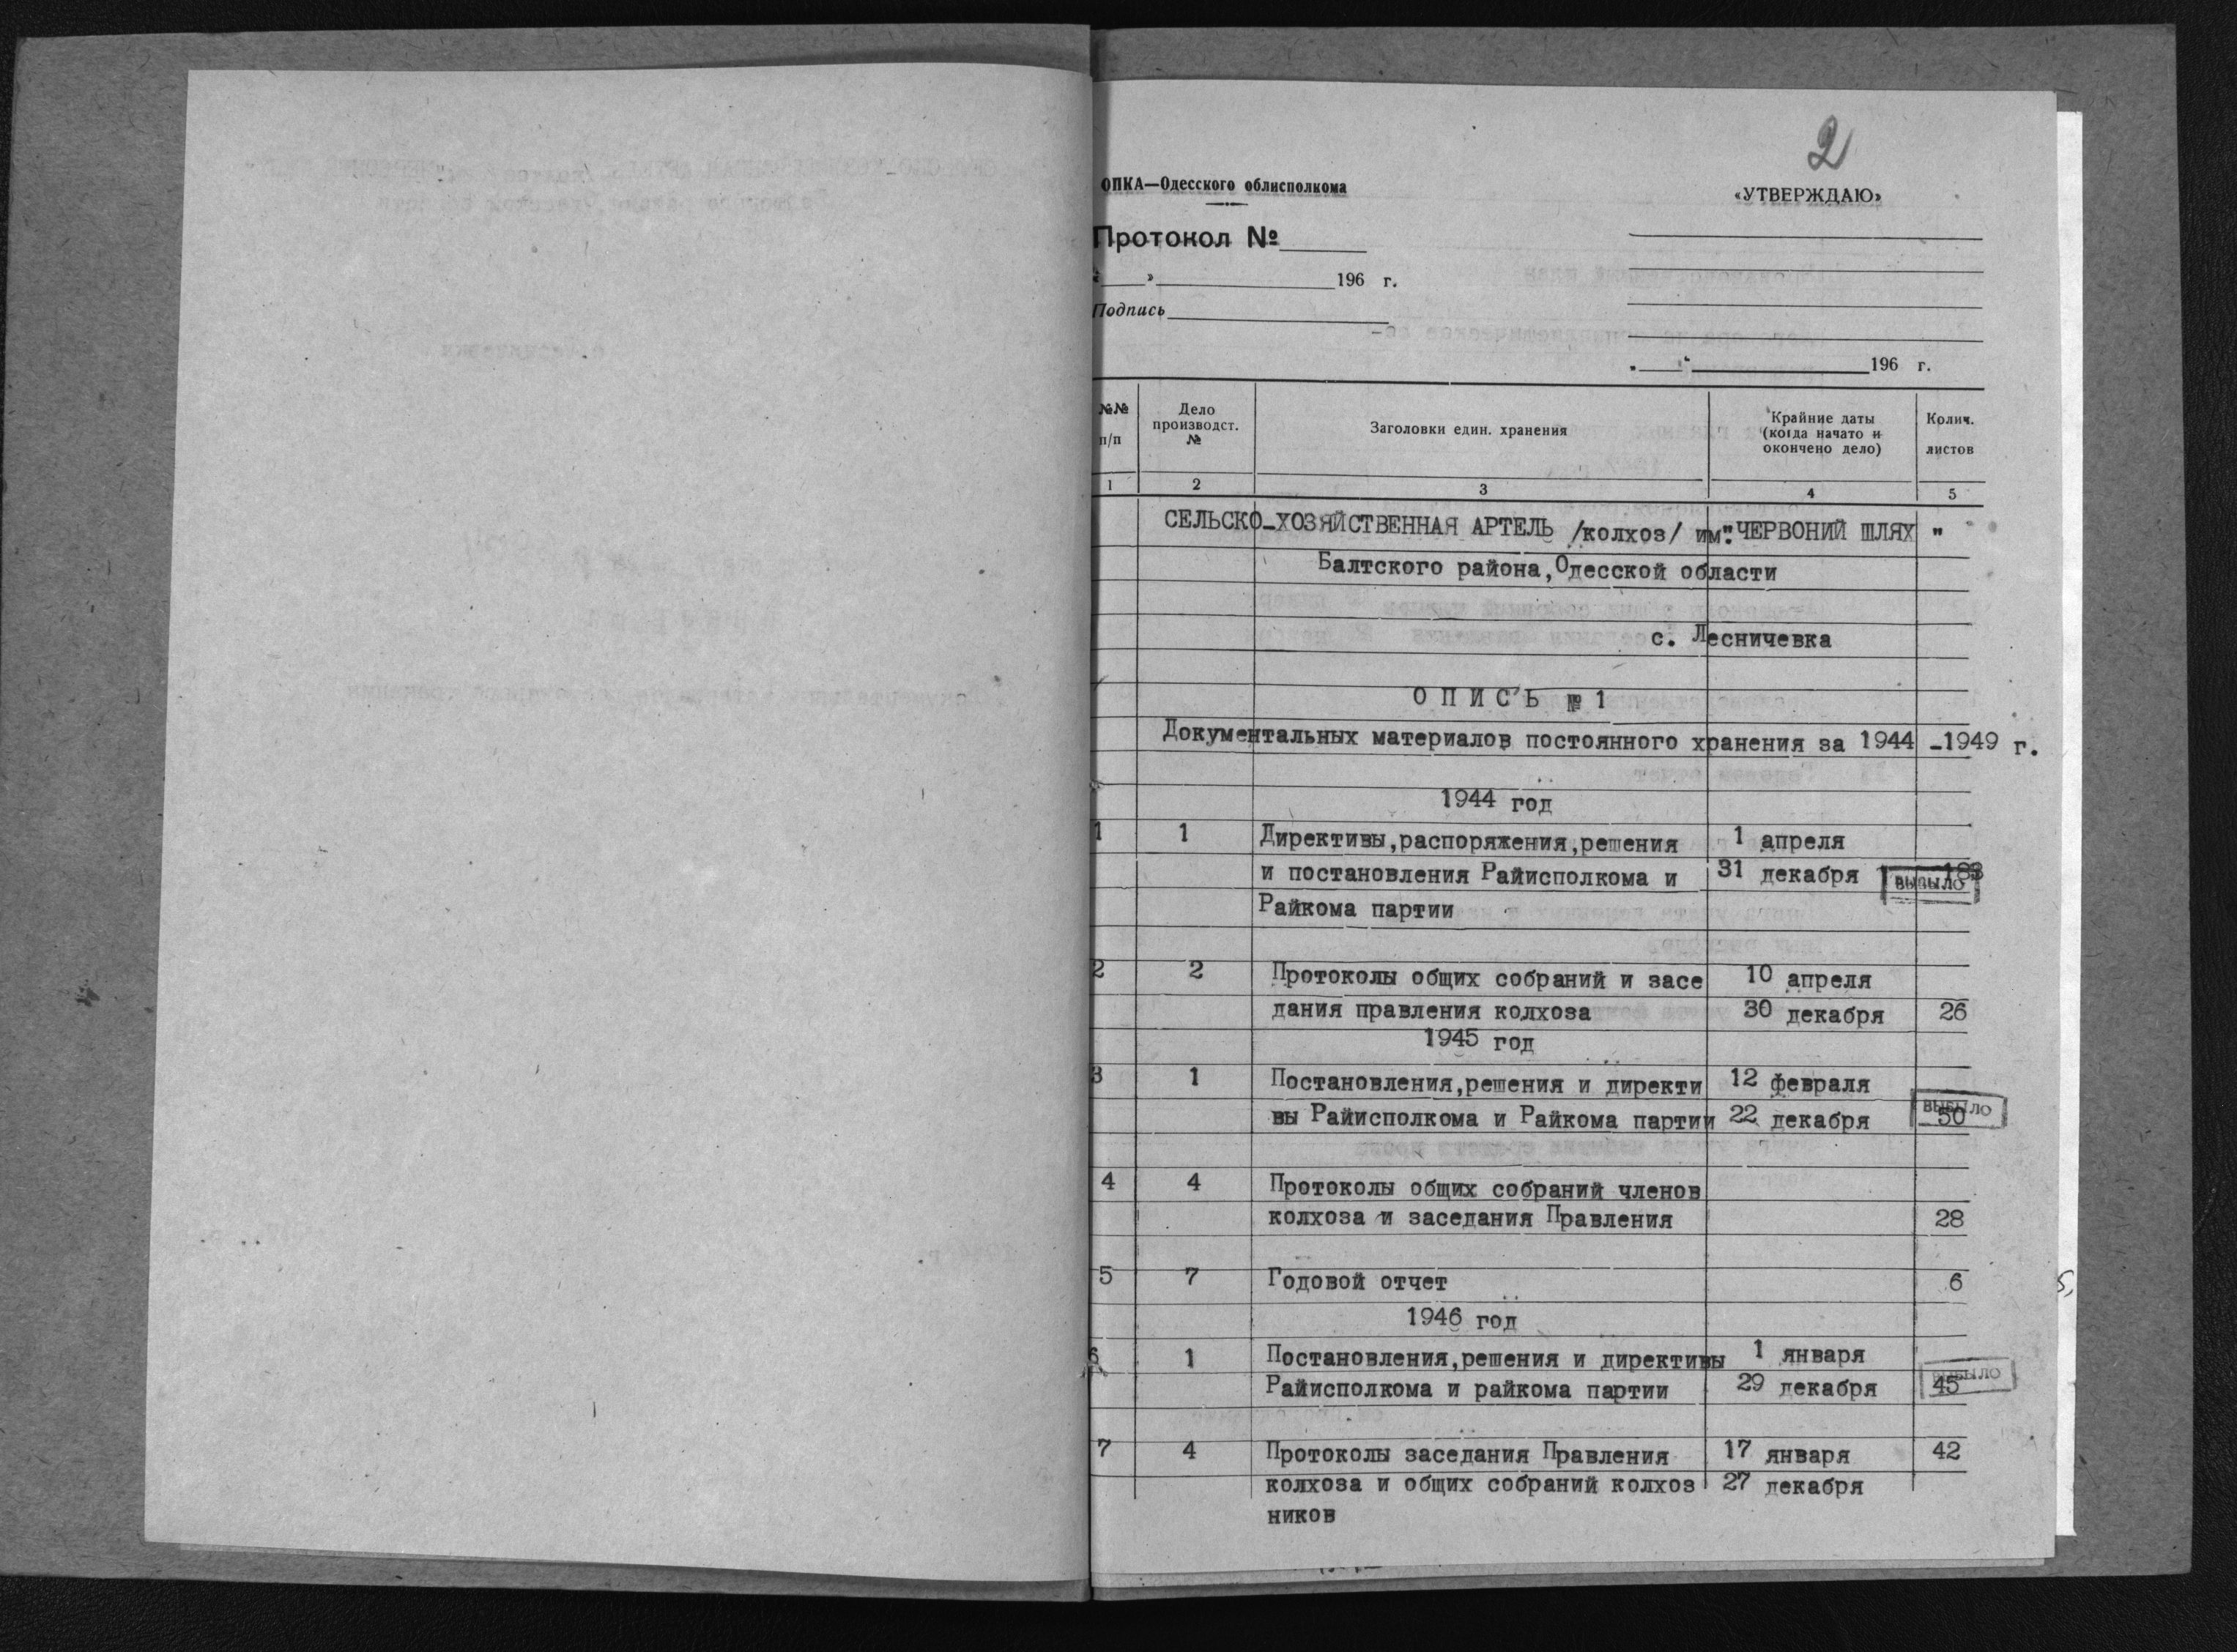 2
ОПКА—Одесского облисполкома
«УТВЕРЖДАЮ»
Протокол №
« » 196 г.
Подпись
196 г.
№№ п/п
Дело производст. №
Заголовки един. хранения
Крайние даты (когда начато и окончено дело)
Колич. листов
1 2 3 4 5
СЕЛЬСКО-ХОЗЯЙСТВЕННАЯ АРТЕЛЬ /колхоз/ им". ЧЕРВОНИЙ ШЛЯХ "
Балтского района,Одесской области
с. Лесничевка
О П И С Ь № 1
Документальных материалов постоянного хранения за 1944 -1949 г.
1944 год
1 1 Директивы,распоряжения,решения 1 апреля
и постановления Райисполкома и 31 декабря 183
ВЫБЫЛО
Райкома партии
2 2 Протоколы общих собраний и засе 10 апреля
дания правления колхоза 30 декабря 26
1945 год
3 1 Постановления,решения и директи 12 февраля
вы Райисполкома и Райкома партии 22 декабря 50
ВЫБЫЛО
4 4 Протоколы общих собраний членов
колхоза и заседания Правления 28
5 7 Годовой отчет 6
1946 год
6 1 Постановления,решения и директивы 1 января
Райисполкома и райкома партии 29 декабря 45
ВЫБЫЛО
7 4 Протоколы заседания Правления 17 января 42
колхоза и общих собраний колхоз 27 декабря
ников